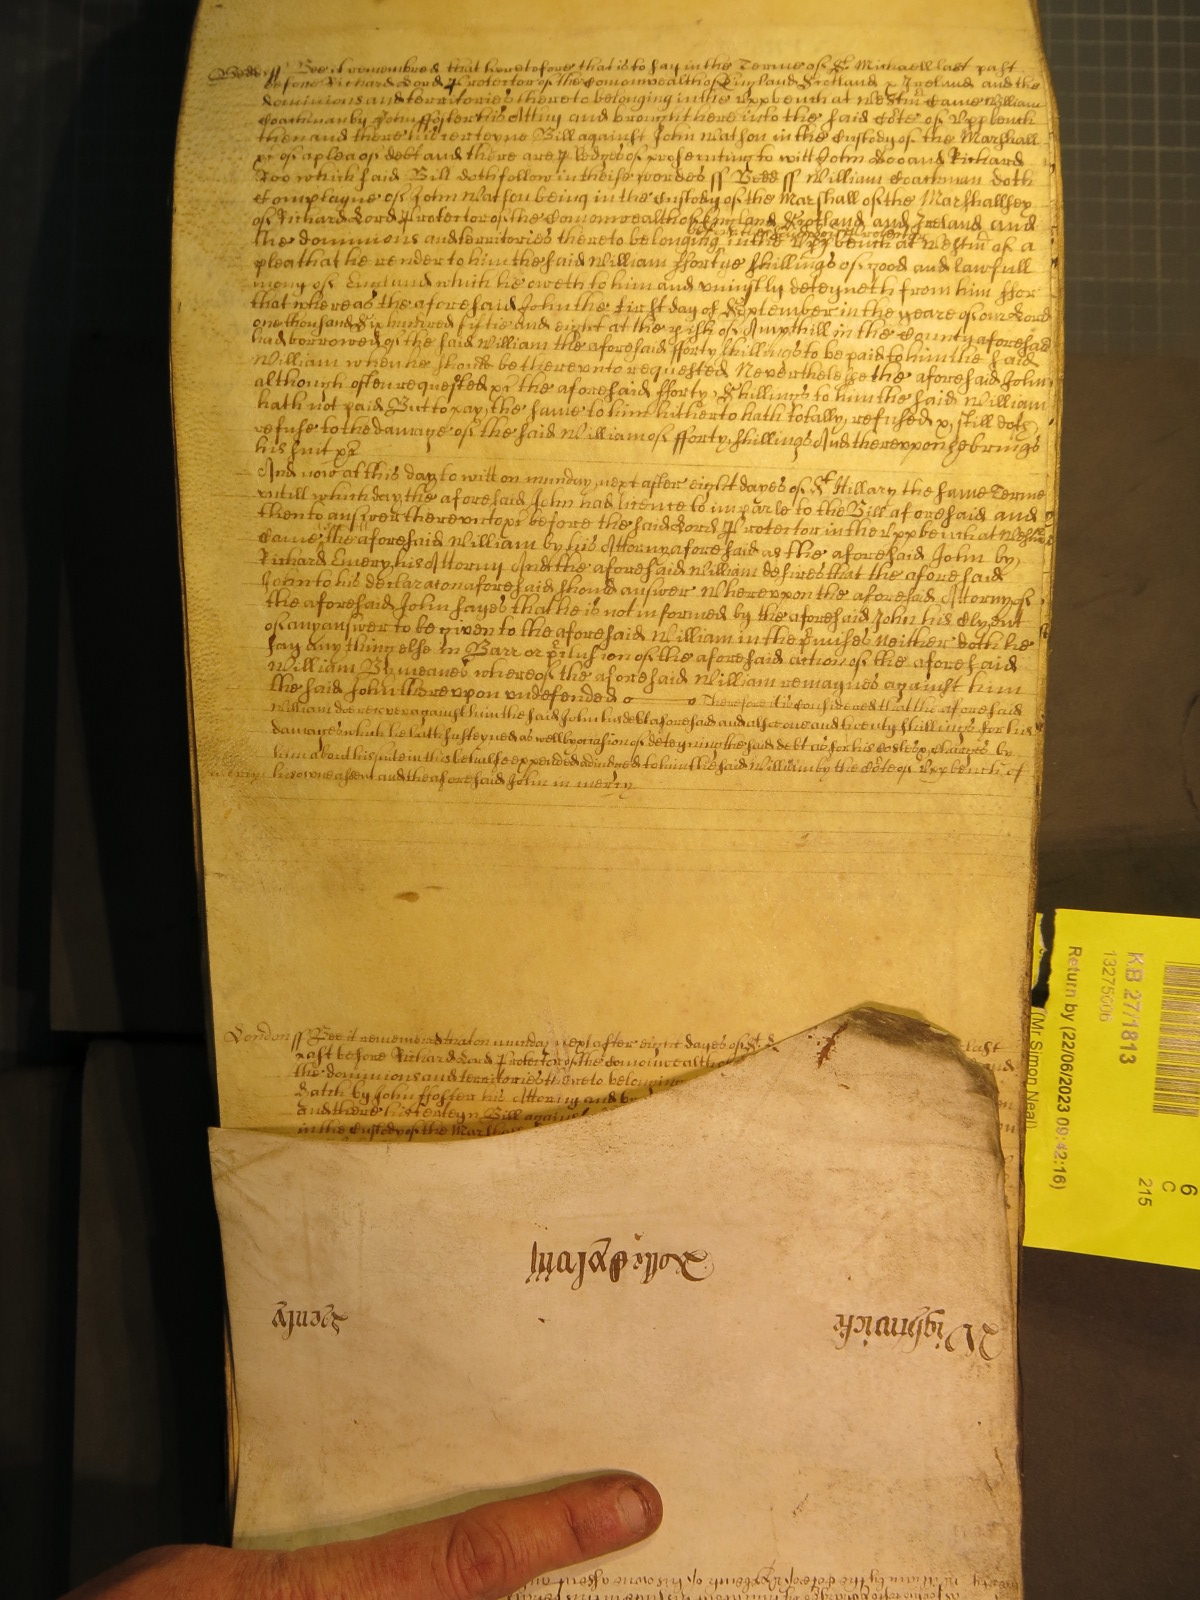 Bedd ss Bee it remembred that heretofore that is to say in the Terme of St. Michaell last past
before Richard Lord Protector of the Comonwealth of England Scotland & Ireland and the
dominions and territories thereto belonging in the Vpp bench at Westm Came William
Coachman by John ffoster his Attiny and brought here into the said Cote of Vpp bench
then and there his certeyne Bill against John Watson in the Custody of the Marshall
&c of a plea of debt and there are pledges of prosecuting to witt John Doo and Richard
Roo which said Bill doth follow in theise wordes ss Bedd ss William Coachman doth
Complayne of John Watson being in the Custody of the Marshall of the Marshallsey
of Richard Lord Protector of the Comonwealth of England Scotland and Ireland and
the dominions and territories thereto belonging in the Vpp bench at Westm of a
plea that he render to him the said William fforty shillings of good and lawfull
mony of England which he oweth to him and uniustly deteyneth from him ffor
that whereas the aforesaid John the first day of September in the yeare of our Lord
one thousand six hundred fiftie and eight at the pish of Ampthill in the County aforesaid
had borrowed of the said William the aforesaid fforty shillings to be paid to him the said
William when he should be therevnto requested Neverthelesse the aforesaid John
although often requested &c the aforesaid fforty Shillings to him the said William
hath not paid But to pay the same to him hitherto hath totally refused & still doth
refuse to the damage of the said William of fforty shillings And therevpon he brings
his suit &c
And now at this day to witt on munday next after eight dayes of St Hillary the same Terme
vntill which day the aforesaid John had licence to imparle to the Bill aforesaid and
then to answer therevnto &c before the said Lord Protector in the Vpp bench at Westm
Came the aforesaid William by his Attorny aforesaid as the aforesaid John by
Richard Emery his Attorny And the aforesaid William desires that the aforesaid
John to his declaraton aforesaid should answer Wherevpon the aforesaid Attorny of
the aforesaid John sayes that he is not informed by the aforesaid John his Clyent
of any answer to be given to the aforesaid William in the pmises Neither doth he
say any thing else in Barr or pclusion of the aforesaid action of the aforesaid
William By meanes whereof the aforesaid William remaynes against him
the said John therevpon vndefended Therefore it is Considered that the aforesaid
William doe recover against him the said John his debt aforesaid and alsoe one and twenty shillings for his
damages which he hath susteyned as well by occasion of deteyning the said debt as for his Costes & charges by
him about his suite in this behalfe expended adiudged to him the said William by the Cote of Vpp bench of
mercy his owne assent and the aforesaid John in mercy
London ss Bee it remembred that on munday next after eight dayes of St last
past before Richard Lord Protector of the Comonwealth and
the dominions and territories thereto belonging
by John ffoster his Attorny and
and there his certeyn Bill against
in the Custody of the Marshall
Rolls
Wightwicke
Henly
KB 27/1813
13275006
Return by (22/06/2023 09:42:16)
(Mr Simon Neal)
6
C
215